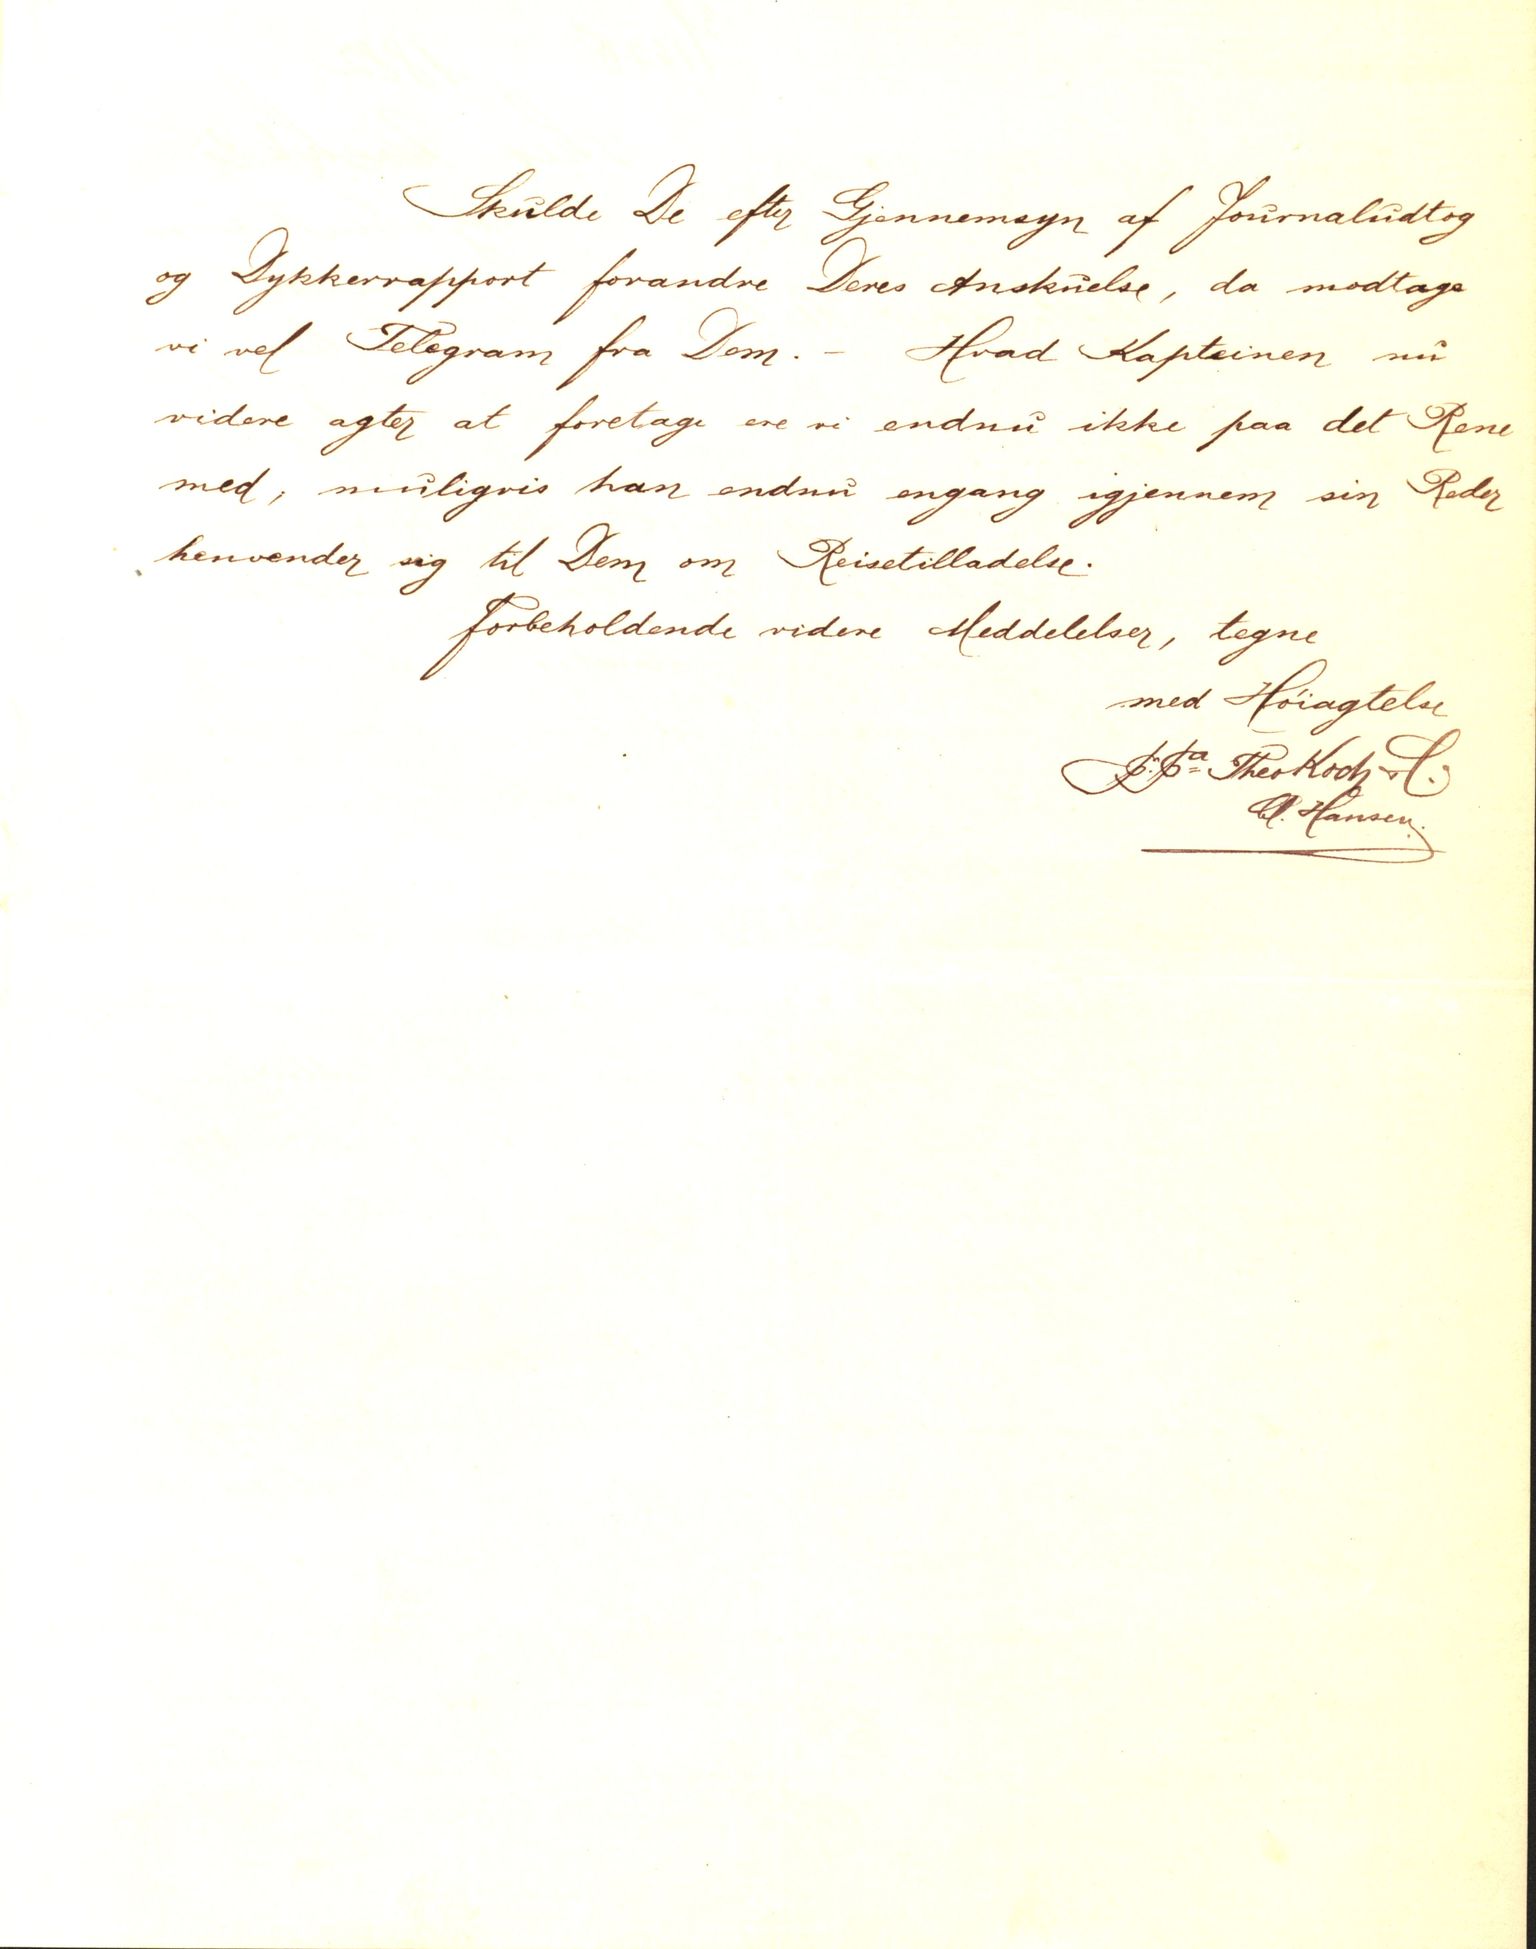 Skulde De efter Gjennemsyn af Journaludtog
og Dykkerrapport forandre Deres Anskuelse, da modtage
vi vel Telegram fra Dem. – Hvad Kapteinen nu
videre agter at foretage ere vi endnu ikke paa det Rene
med; muligvis han endnu engang igjennem sin Reder
henvender sig til Dem om Reisetilladelse.
Forbeholdende videre Meddelelser, tegne
med Høiagtelse
p. pa Theo Koch & C.
Hansen.